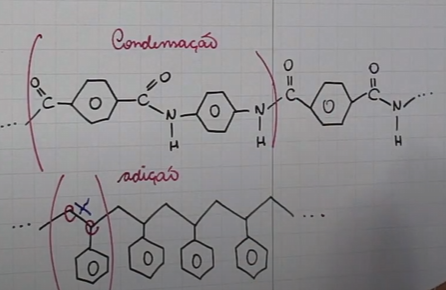 Condensação
O O O O
C C N N C C N ...
... H H H
adição
... C ...
C